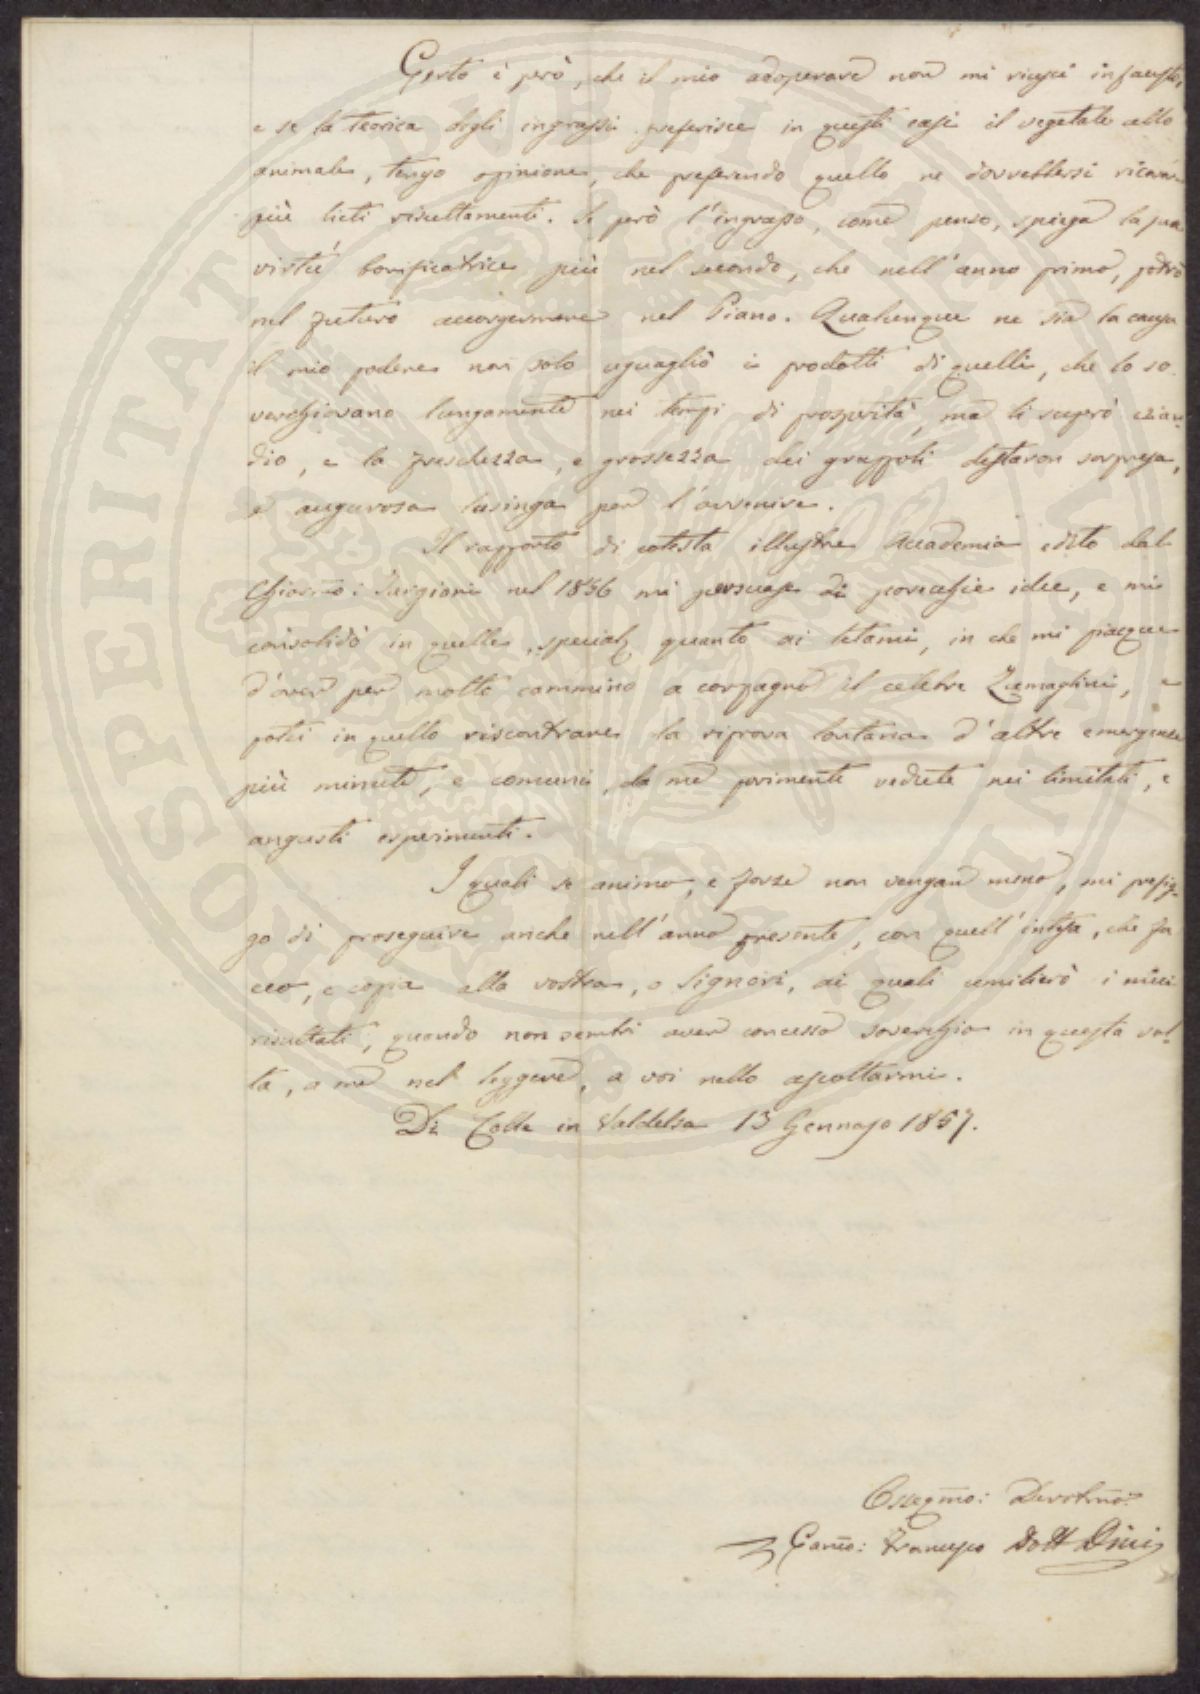 Certo è però, che il mio adoperare non mi riuscì infausto,
e se la teorica degli ingrassi preferisce in questi casi il vegetale allo
animale, tengo opinione, che preferendo quello ne dovrebbersi ricavare
più lieti risultamenti. Se però l'ingrasso, come penso, spiega la sua
virtù bonificatrice più nel secondo, che nell'anno primo, potrò
nel futuro accorgermene nel Piano. Qualunque ne sia la causa
il mio podere non solo uguagliò i prodotti di quelli, che lo so
verchiavano lungamente nei tempi di prosperità, ma li superò ezian
dio, e la freschezza, e grossezza dei grappoli destaron sorpresa,
e augurosa lusinga per l'avvenire.
Il rapporto di cotesta illustre Accademia edito dal
nel 1856 mi persuase di idee, e mi
consolidò in quelle, quanto ai letami, in che mi piacque
d'aver per molto cammino a compagno il celebre
potei in quello riscontrare la riprova lontana d'altre emergenze
più minute, e comuni, da me parimente vedute nei limitati, e
angusti esperimenti.
I quali se animo, e forze non vengan meno, mi prefig
go di proseguire anche nell'anno presente, con quell'intesa, che fa
ceo, e copia alla vostra, o Signori, ai quali umilierò i miei
risultati, quando non sembri aver concesso soverchio in questa vol
ta, a me nel leggere, a voi nello ascoltarmi.
Di Colle in Valdelsa 13 Gennajo 1857.
Osseqmo: Devotmo:
Canco: Francesco Dott Dini
PROSPERITATI PUBLICAE AUGENDAE